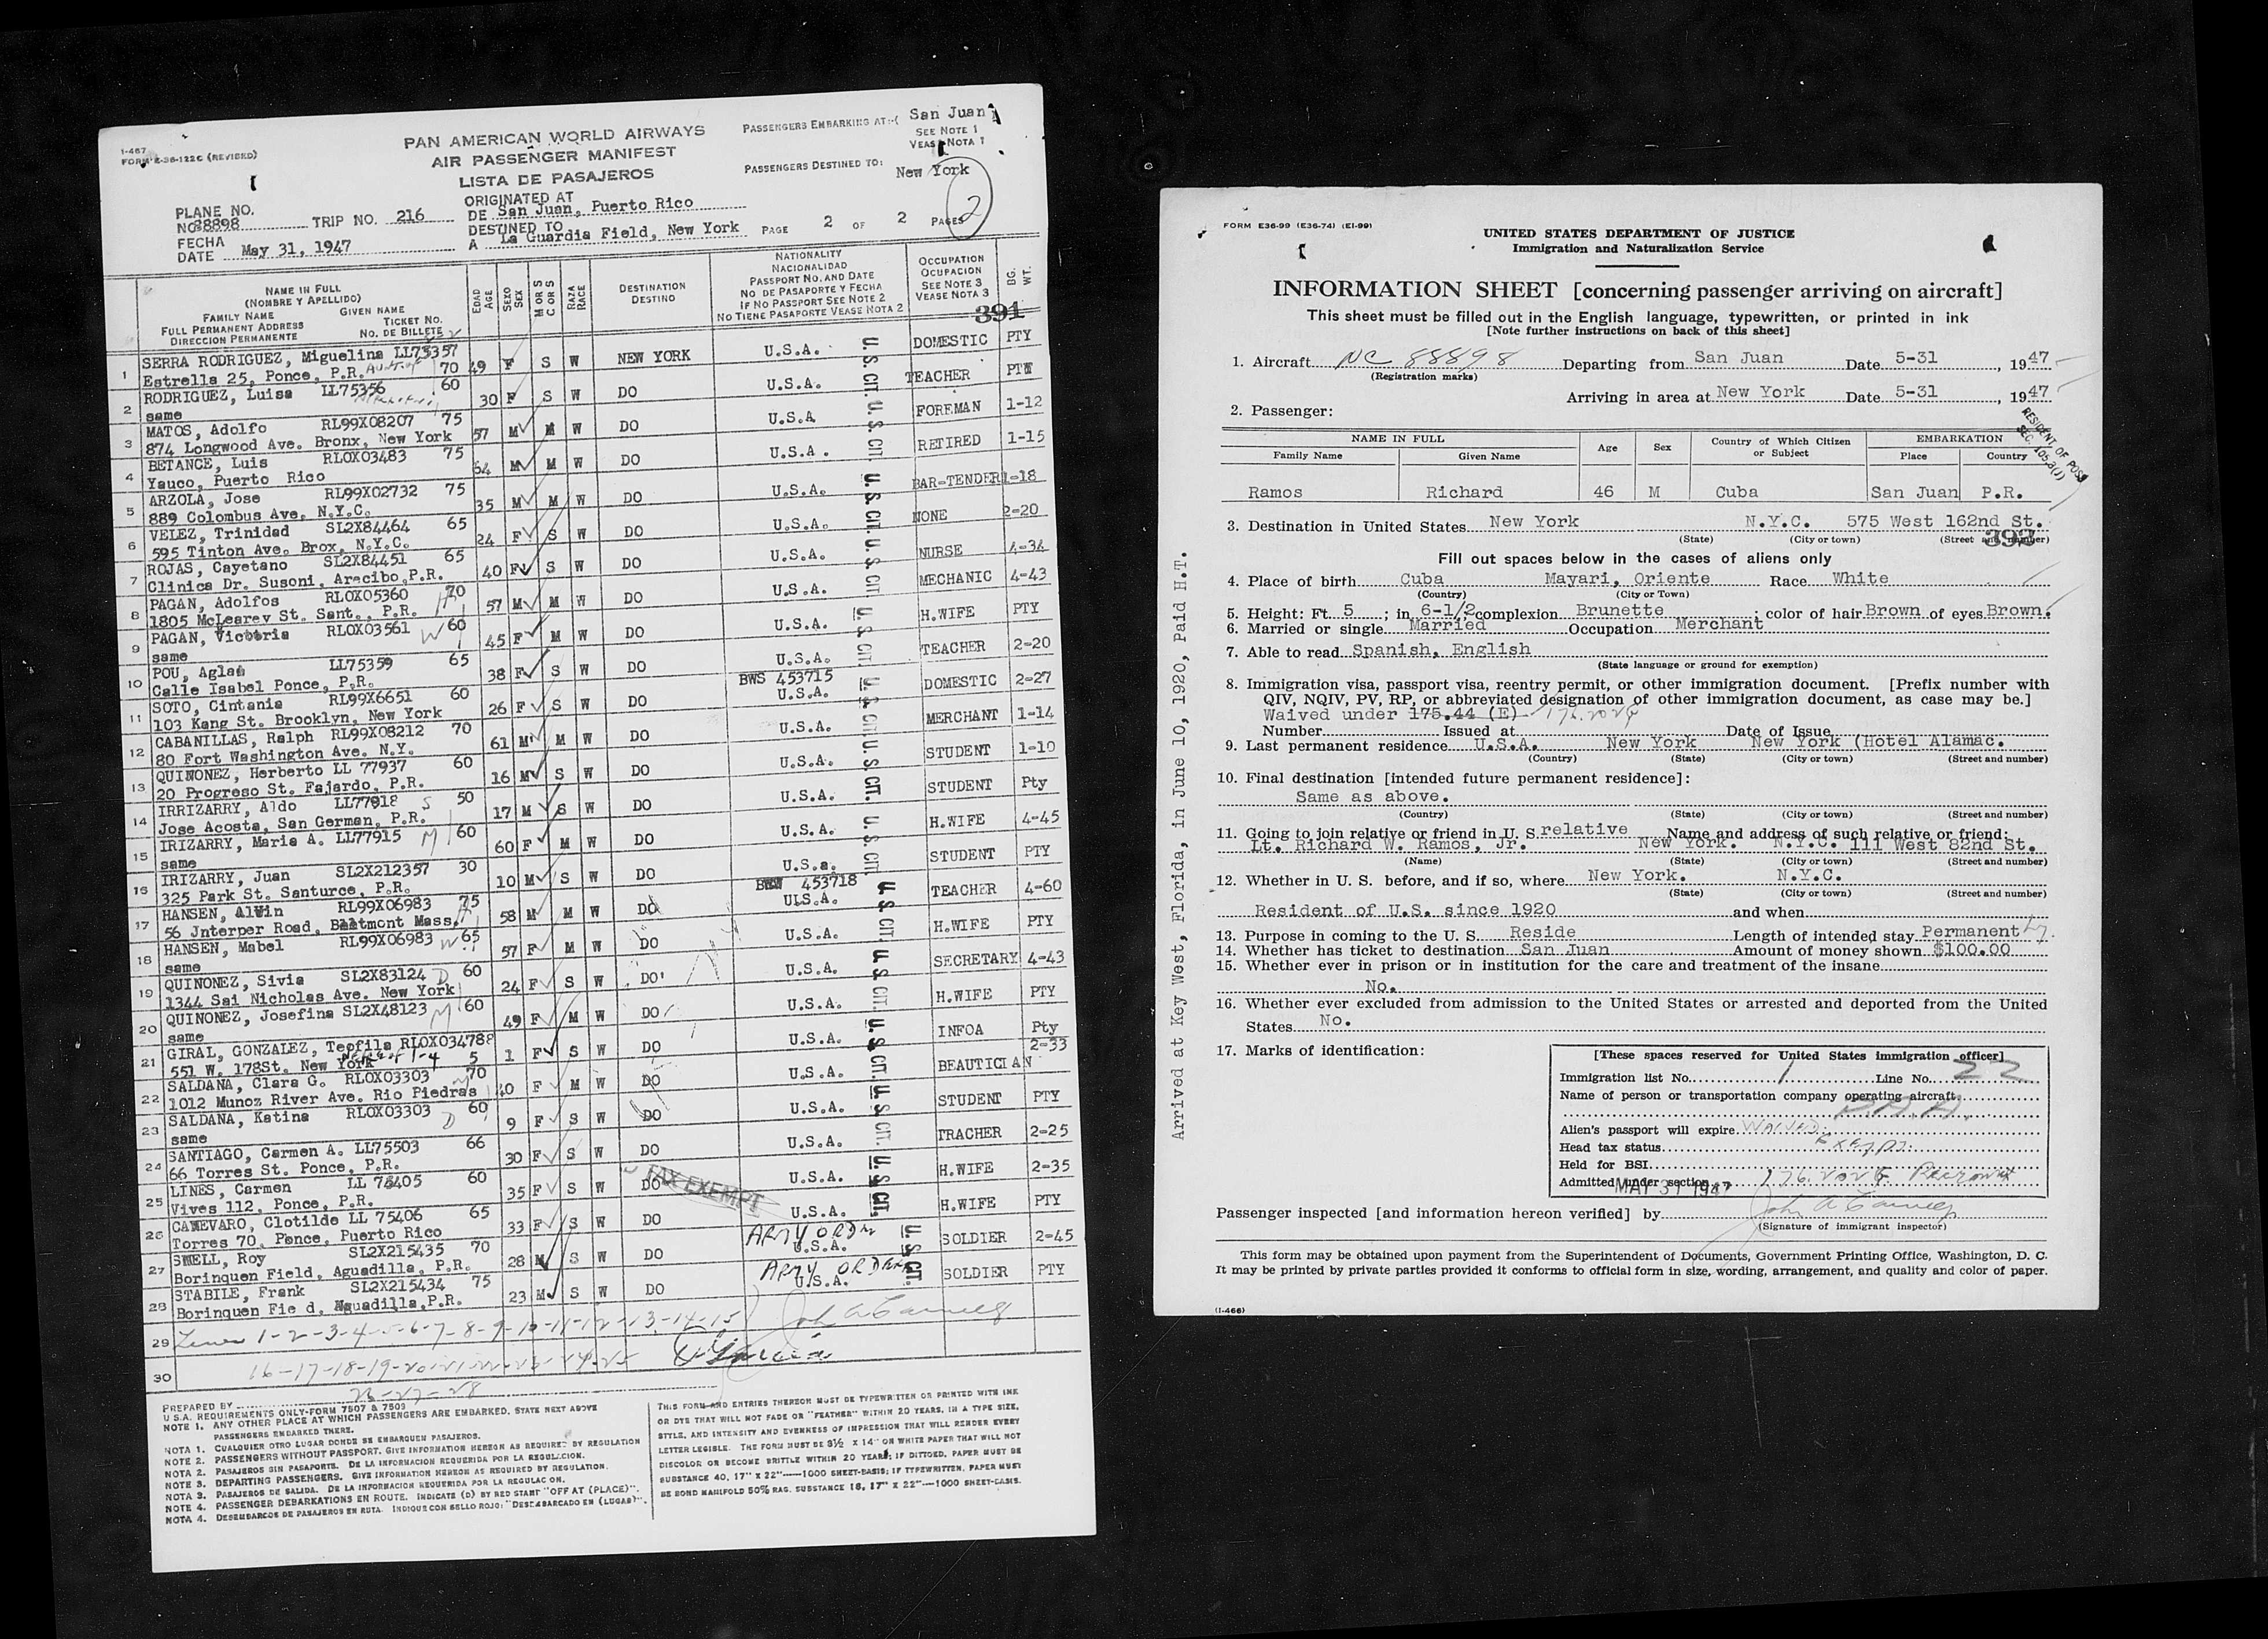 I-467
FORM E-36-122C (REVISED)
PAN AMERICAN WORLD AIRWAYS
AIR PASSENGER MANIFEST
LISTA DE PASAJEROS
PASSENGERS EMBARKING AT:-( San Juan
SEE NOTE 1
VEASE NOTA 1
PASSENGERS DESTINED TO: New York
2
PLANE NO.
NC88898 TRIP NO. 216
ORIGINATED AT
DE San Juan, Puerto Rico
FECHA
DATE May 31, 1947
DESTINED TO
A La Guardia Field, New York PAGE 2 OF 2 PAGES
NAME IN FULL
(NOMBRE Y APELLIDO)
FAMILY NAME GIVEN NAME
FULL PERMANENT ADDRESS TICKET NO.
DIRECCION PERMANENTE NO. DE BILLETE
EDAD AGE
SEXO SEX
M OR S C OR S
RAZA RACE
DESTINATION
DESTINO
NATIONALITY
NACIONALIDAD
PASSPORT NO. AND DATE
NO DE PASAPORTE Y FECHA
IF NO PASSPORT SEE NOTE 2
NO TIENE PASAPORTE VEASE NOTA 2
OCCUPATION
OCUPACION
SEE NOTE 3
VEASE NOTA 3
BG. WT.
391
1 SERRA RODRIGUEZ, Miguelina LL75357 49 F S W NEW YORK U.S.A. U.S. CIT. DOMESTIC PTY
Estrella 25, Ponce, P.R. Aunt of 70
2 RODRIGUEZ, Luisa LL75356 60 30 F S W DO U.S.A. U.S. CIT. TEACHER PTY
same
3 MATOS, Adolfo RL99X08207 75 57 M M W DO U.S.A U.S. CIT. FOREMAN 1-12
874 Longwood Ave. Bronx, New York
4 BETANCE, Luis RLOX03483 75 64 M M W DO U.S.A. U.S. CIT. RETIRED 1-15
Yauco, Puerto Rico
5 ARZOLA, Jose RL99X02732 75 35 M M W DO U.S.A. U.S. CIT. BAR-TENDER 1-18
889 Colombus Ave, N.Y.C.
6 VELEZ, Trinidad SL2X84464 65 24 F S W DO U.S.A. U.S. CIT. NONE 2-20
595 Tinton Ave. Brox, N.Y.C.
7 ROJAS, Cayetano SL2X84451 65 40 F S W DO U.S.A. U.S. CIT. NURSE 4-34
Clinica Dr. Susoni, Arecibo,P.R.
8 PAGAN, Adolfos RLOX05360 70 57 M M W DO U.S.A. U.S. CIT. MECHANIC 4-43
1805 McLearey St. Sant., P.R. H
9 PAGAN, Victoria RLOX03561 W 60 45 F M W DO U.S.A. U.S. CIT. H.WIFE PTY
same
10 POU, Aglae LL75359 65 38 F S W DO U.S.A. TEACHER 2-20
Calle Isabel Ponce, P.R.
11 SOTO, Cintania RL99X6651 60 26 F S W DO BWS 453715 U.S.A. U.S. CIT. DOMESTIC 2-27
103 Kang St. Brooklyn, New York
12 CABANILLAS, Ralph RL99X08212 70 61 M M W DO U.S.A. U.S. CIT. MERCHANT 1-14
80 Fort Washington Ave. N.Y.
13 QUINONEZ, Herberto LL 77937 60 16 M S W DO U.S.A. U.S. CIT. STUDENT 1-10
20 Progreso St. Fajardo, P.R.
14 IRRIZARRY, Aldo LL77918 S 50 17 M S W DO U.S.A. U.S. CIT. STUDENT Pty
Jose Acosta, San German, P.R.
15 IRIZARRY, Maria A. LL77915 M 60 60 F M W DO U.S.A. U.S. CIT. H.WIFE 4-45
same
16 IRIZARRY, Juan SL2X212357 30 10 M S W DO U.S.a. STUDENT PTY
325 Park St. Santurce, P.R.
17 HANSEN, Alvin RL99X06983 75 58 M M W DO 453718 U.S.A. U.S. CIT. TEACHER 4-60
56 Jnterper Road, Beltmont Mass. H
18 HANSEN, Mabel RL99X06983 W 65 57 F M W DO U.S.A. U.S. CIT. H.WIFE PTY
same
19 QUINONEZ, Sivia SL2X83124 D 60 24 F S W DO U.S.A. U.S. CIT. SECRETARY 4-43
1344 Sai Nicholas Ave. New York
20 QUINONEZ, Josefina SL2X48123 M 60 49 F M W DO U.S.A. U.S. CIT. H.WIFE PTY
same
21 GIRAL, GONZALEZ, Teofila RLOX034788 5 1 F S W DO U.S.A. U.S. CIT. INFOA Pty
551 W. 178St. New York
22 SALDANA, Clara G. RLOX03303 70 40 F M W DO U.S.A. U.S. CIT. BEAUTICIAN 2-33
1012 Munoz River Ave. Rio Piedras
23 SALDANA, Katina RLOX03303 D 60 9 F S W DO U.S.A. U.S. CIT. STUDENT PTY
same
24 SANTIAGO, Carmen A. LL75503 66 30 F S W DO U.S.A. U.S. CIT. TRACHER 2-25
66 Torres St. Ponce, P.R.
25 LINES, Carmen LL 75405 60 35 F S W DO U.S.A. U.S. CIT. H.WIFE 2-35
Vives 112, Ponce, P.R.
TAX EXEMPT
26 CANEVARO, Clotilde LL 75406 65 33 F S W DO U.S.A. H.WIFE PTY
Torres 70, Ponce, Puerto Rico
27 SWELL, Roy SL2X215435 70 28 M S W DO ARMY ORDER U.S.A. U.S. CIT. SOLDIER 2-45
Borinquen Field, Aguadilla, P.R.
28 STABILE, Frank SL2X215434 75 23 M S W DO ARMY ORDER U.S.A. SOLDIER PTY
Borinquen Fie d, Aguadilla,P.R.
29 Lines 1-2-3-4-5-6-7-8-9-10-11-12-13-14-15
30 16-17-18-19-20-21-22-23-24-25
26-27-28
PREPARED BY
U.S.A. REQUIREMENTS ONLY-FORM 7507 & 7509
NOTE 1. ANY OTHER PLACE AT WHICH PASSENGERS ARE EMBARKED. STATE NEXT ABOVE
PASSENGERS EMBARKED THERE.
NOTA 1. CUALQUIER OTRO LUGAR DONDE SE EMBARQUEN PASAJEROS.
NOTE 2. PASSENGERS WITHOUT PASSPORT. GIVE INFORMATION HEREON AS REQUIRED BY REGULATION
NOTA 2. PASAJEROS SIN PASAPORTE. DE LA INFORMACION REQUERIDA POR LA REGULACION.
NOTE 3. DEPARTING PASSENGERS. GIVE INFORMATION HEREON AS REQUIRED BY REGULATION.
NOTA 3. PASAJEROS DE SALIDA. DE LA INFORMACION REQUERIDA POR LA REGULACION.
NOTE 4. PASSENGER DEBARKATIONS EN ROUTE. INDICATE (D) BY RED STAMT "OFF AT (PLACE)".
NOTA 4. DESEMBARCOS DE PASAJEROS EN RUTA. INDIQUE CON SELLO ROJO: "DESEMBARCADO EN (LUGAR)".
THIS FORM AND ENTRIES THEREON MUST BE TYPEWRITTEN OR PRINTED WITH INK
OR DYE THAT WILL NOT FADE OR "FEATHER" WITHIN 20 YEARS, IN A TYPE SIZE,
STYLE, AND INTENSITY AND EVENNESS OF IMPRESSION THAT WILL RENDER EVERY
LETTER LEGIBLE. THE FORM MUST BE 8½ X 14" ON WHITE PAPER THAT WILL NOT
DISCOLOR OR BECOME BRITTLE WITHIN 20 YEARS; IF DITTOED, PAPER MUST BE
SUBSTANCE 40, 17" X 22"-----1000 SHEET-BASIS; IF TYPEWRITTEN, PAPER MUST
BE BOND MANIFOLD 50% RAG. SUBSTANCE 18, 17" X 22"---1000 SHEET-BASIS.
FORM E36-99 (E36-74) (EI-99)
UNITED STATES DEPARTMENT OF JUSTICE
Immigration and Naturalization Service
INFORMATION SHEET [concerning passenger arriving on aircraft]
This sheet must be filled out in the English language, typewritten, or printed in ink
[Note further instructions on back of this sheet]
1. Aircraft NC 88898 Departing from San Juan Date 5-31, 1947
(Registration marks)
Arriving in area at New York Date 5-31, 1947
2. Passenger:
RESIDENT OF POSS
SEC. 105.3(J)
NAME IN FULL Age Sex Country of Which Citizen or Subject EMBARKATION
Family Name Given Name Place Country
Ramos Richard 46 M Cuba San Juan P.R.
3. Destination in United States New York N.Y.C. 575 West 162nd St.
(State) (City or town) (Street and number)
392
Fill out spaces below in the cases of aliens only
4. Place of birth Cuba Mayari, Oriente Race White
(Country) (City or Town)
5. Height: Ft. 5; in. 6-1/2 complexion Brunette; color of hair Brown of eyes Brown.
6. Married or single Married Occupation Merchant
7. Able to read Spanish, English
(State language or ground for exemption)
8. Immigration visa, passport visa, reentry permit, or other immigration document. [Prefix number with
QIV, NQIV, PV, RP, or abbreviated designation of other immigration document, as case may be.]
Waived under 175.44 (E) 176.202
Number Issued at Date of Issue
9. Last permanent residence U.S.A. New York New York (Hotel Alamac.
(Country) (State) (City or town) (Street and number)
10. Final destination [intended future permanent residence]:
Same as above.
(Country) (State) (City or town) (Street and number)
11. Going to join relative or friend in U. S. relative Name and address of such relative or friend:
Lt. Richard W. Ramos, Jr. New York. N.Y.C. 111 West 82nd St.
(Name) (State) (City or town) (Street and number)
12. Whether in U. S. before, and if so, where New York. N.Y.C.
(State) (City or town) (Street and number)
Resident of U.S. since 1920 and when
13. Purpose in coming to the U. S. Reside Length of intended stay Permanently.
14. Whether has ticket to destination San Juan Amount of money shown $100.00
15. Whether ever in prison or in institution for the care and treatment of the insane
No.
16. Whether ever excluded from admission to the United States or arrested and deported from the United
States No.
17. Marks of identification:
[These spaces reserved for United States immigration officer]
Immigration list No. 1 Line No. 22
Name of person or transportation company operating aircraft
P.A.A.
Alien's passport will expire WAIVED.
Head tax status Exempt.
Held for BSI
Admitted under section 176.202
MAY 31 1947
Passenger inspected [and information hereon verified] by
(Signature of immigrant inspector)
This form may be obtained upon payment from the Superintendent of Documents, Government Printing Office, Washington, D. C.
It may be printed by private parties provided it conforms to official form in size, wording, arrangement, and quality and color of paper.
(I-466)
Arrived at Key West, Florida, in June 10, 1920, Paid H.T.